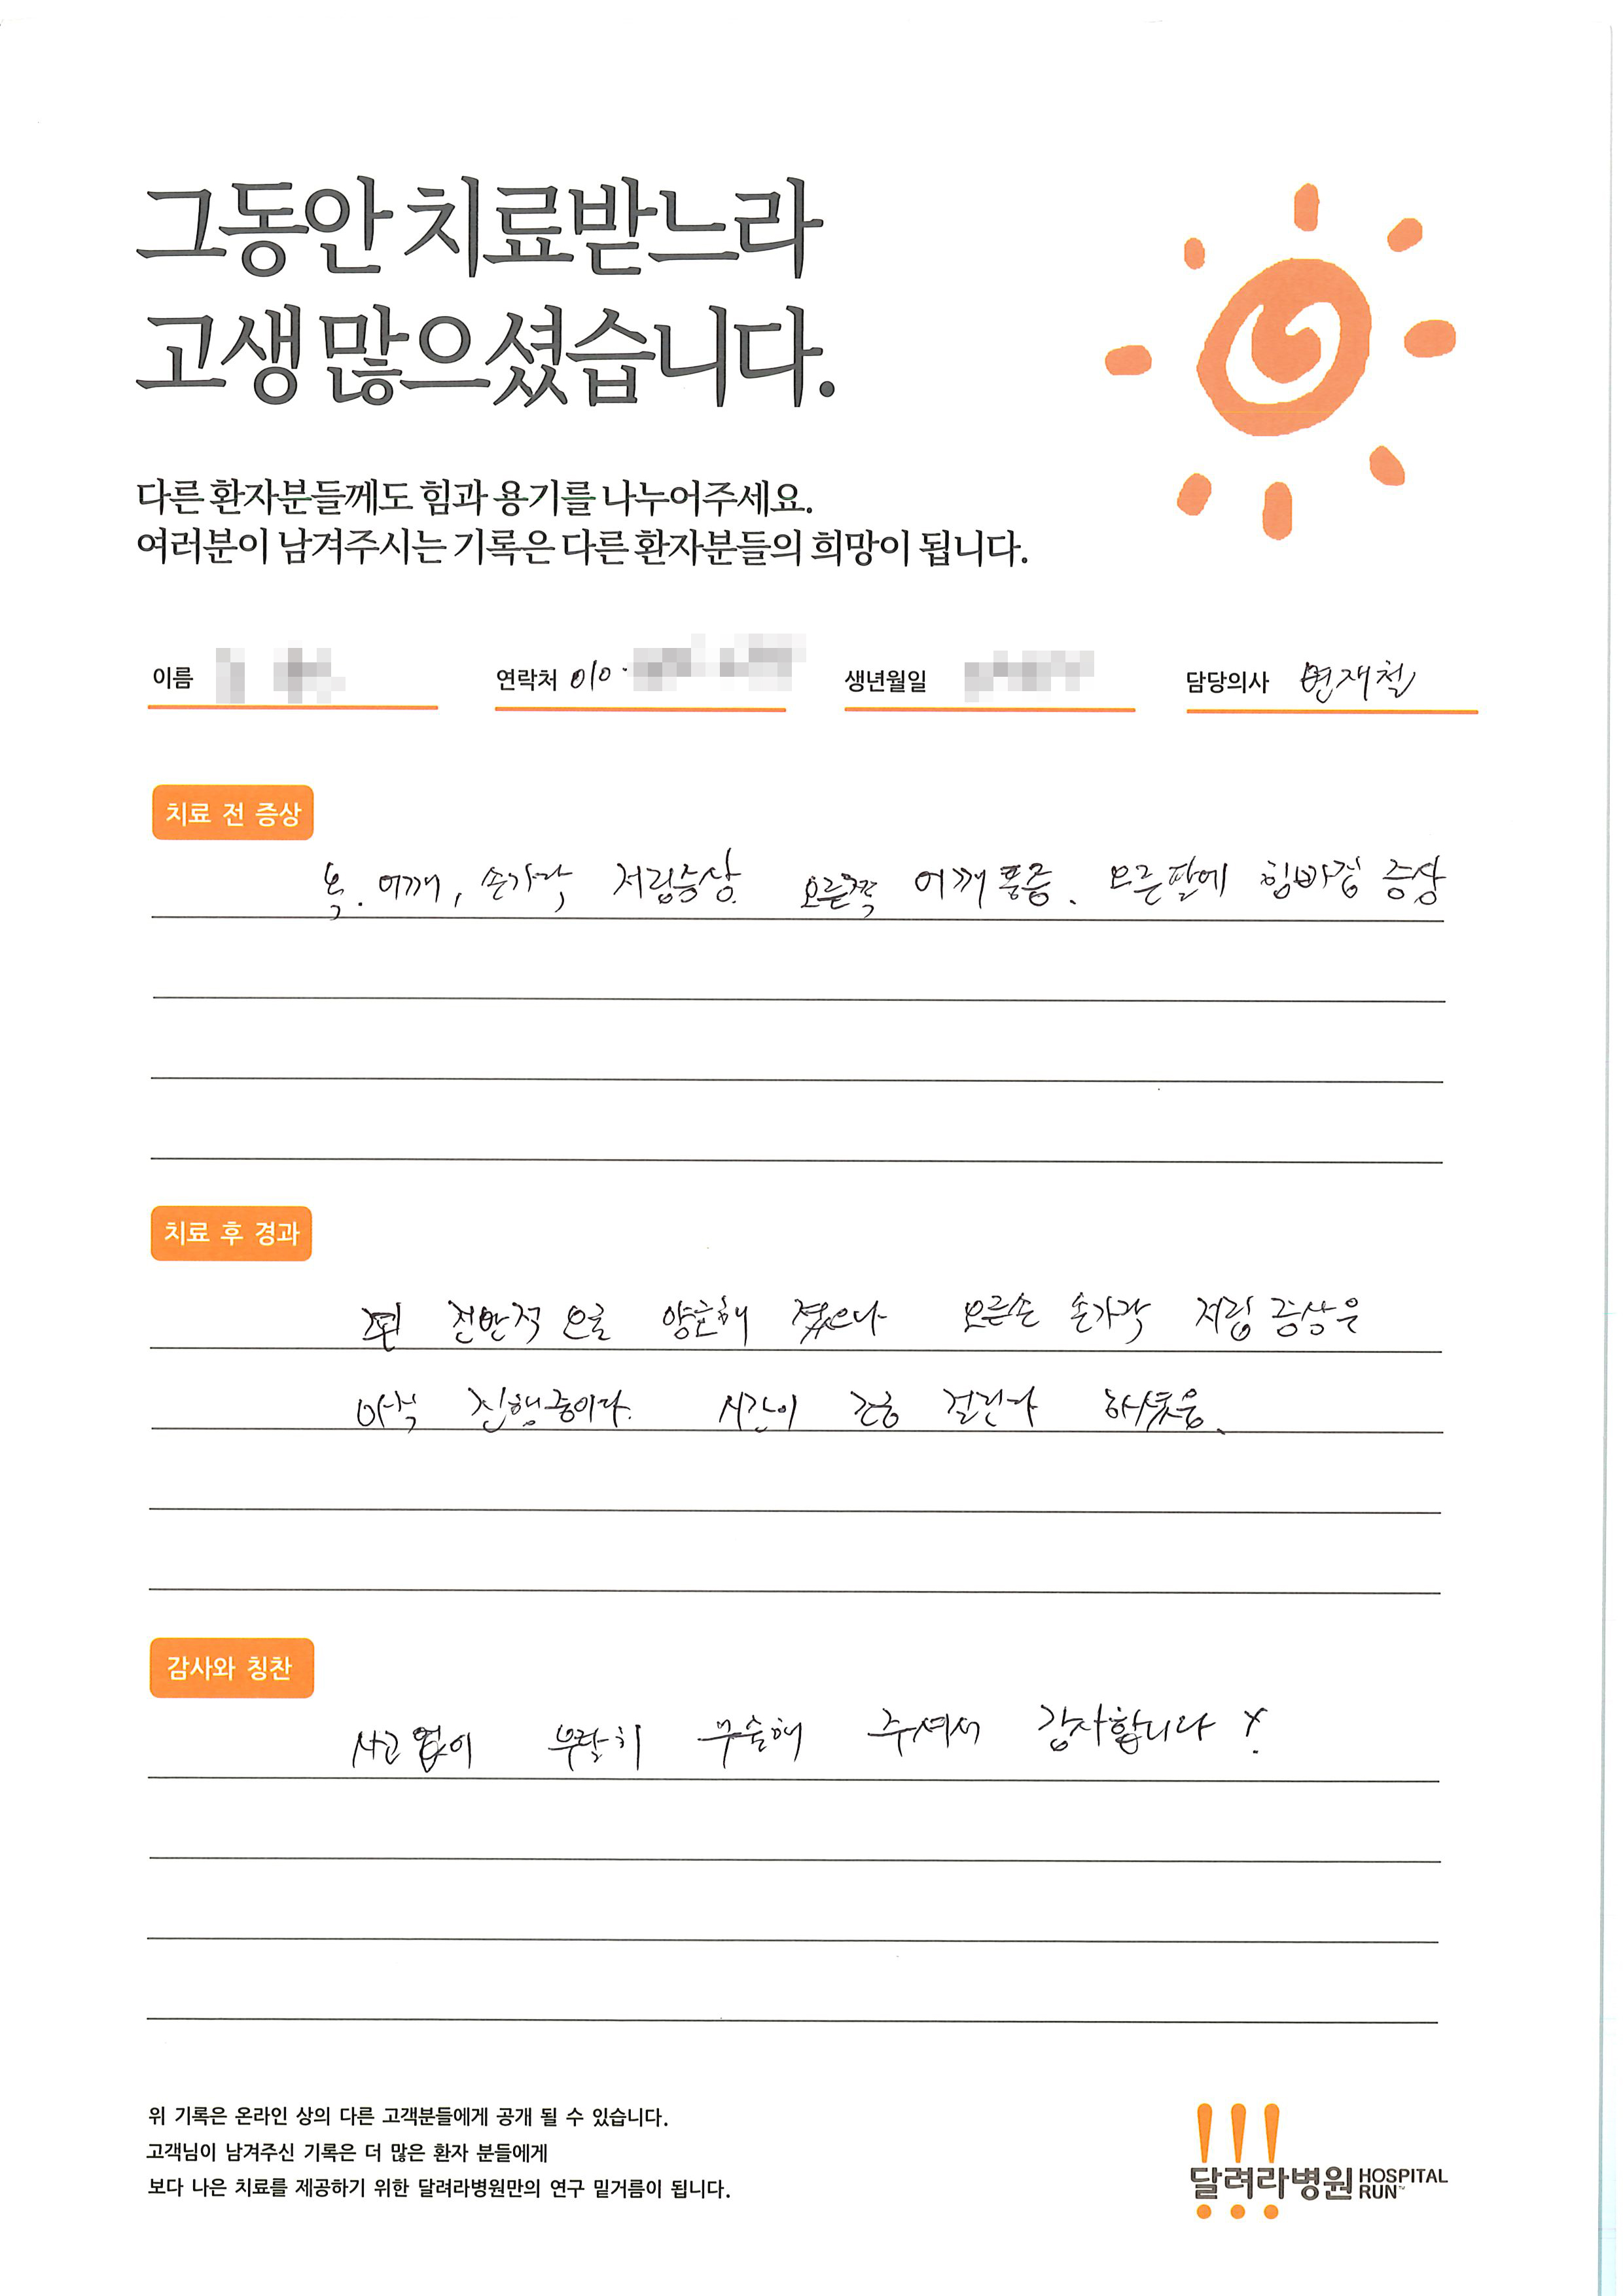 그동안 치료받느라
고생 많으셨습니다.
다른 환자분들께도 힘과 용기를 나누어주세요.
여러분이 남겨주시는 기록은 다른 환자분들의 희망이 됩니다.
이름 연락처 010. 생년월일 담당의사 변재철
치료 전 증상
목. 어깨, 손가락 저림증상. 오른쪽 어깨통증. 오른팔에 힘빠짐 증상
치료 후 경과
전반적으로 양호해 졌으나 오른손 손가락 저림 증상은
아직 진행중이다. 시간이 조금 걸린다 하셨음.
감사와 칭찬
사고 없이 무탈히 수술해 주셔서 감사합니다
위 기록은 온라인 상의 다른 고객분들에게 공개 될 수 있습니다.
고객님이 남겨주신 기록은 더 많은 환자 분들에게
보다 나은 치료를 제공하기 위한 달려라병원만의 연구 밑거름이 됩니다.
달려라병원 HOSPITAL
RUN™